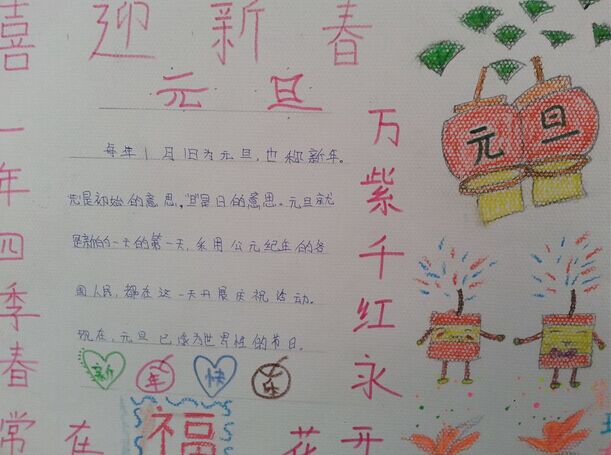 喜迎新春
元旦
一年四季春常在
每年1月1日为元旦,也称新年。
元是初始的意思,"旦"是日的意思。元旦就
是新的一天的第一天,采用公元纪年的各
国人民,都在这一天开展庆祝活动。
现在,元旦已成为世界性的节日。
新年快乐
福
万紫千红永开花
元旦